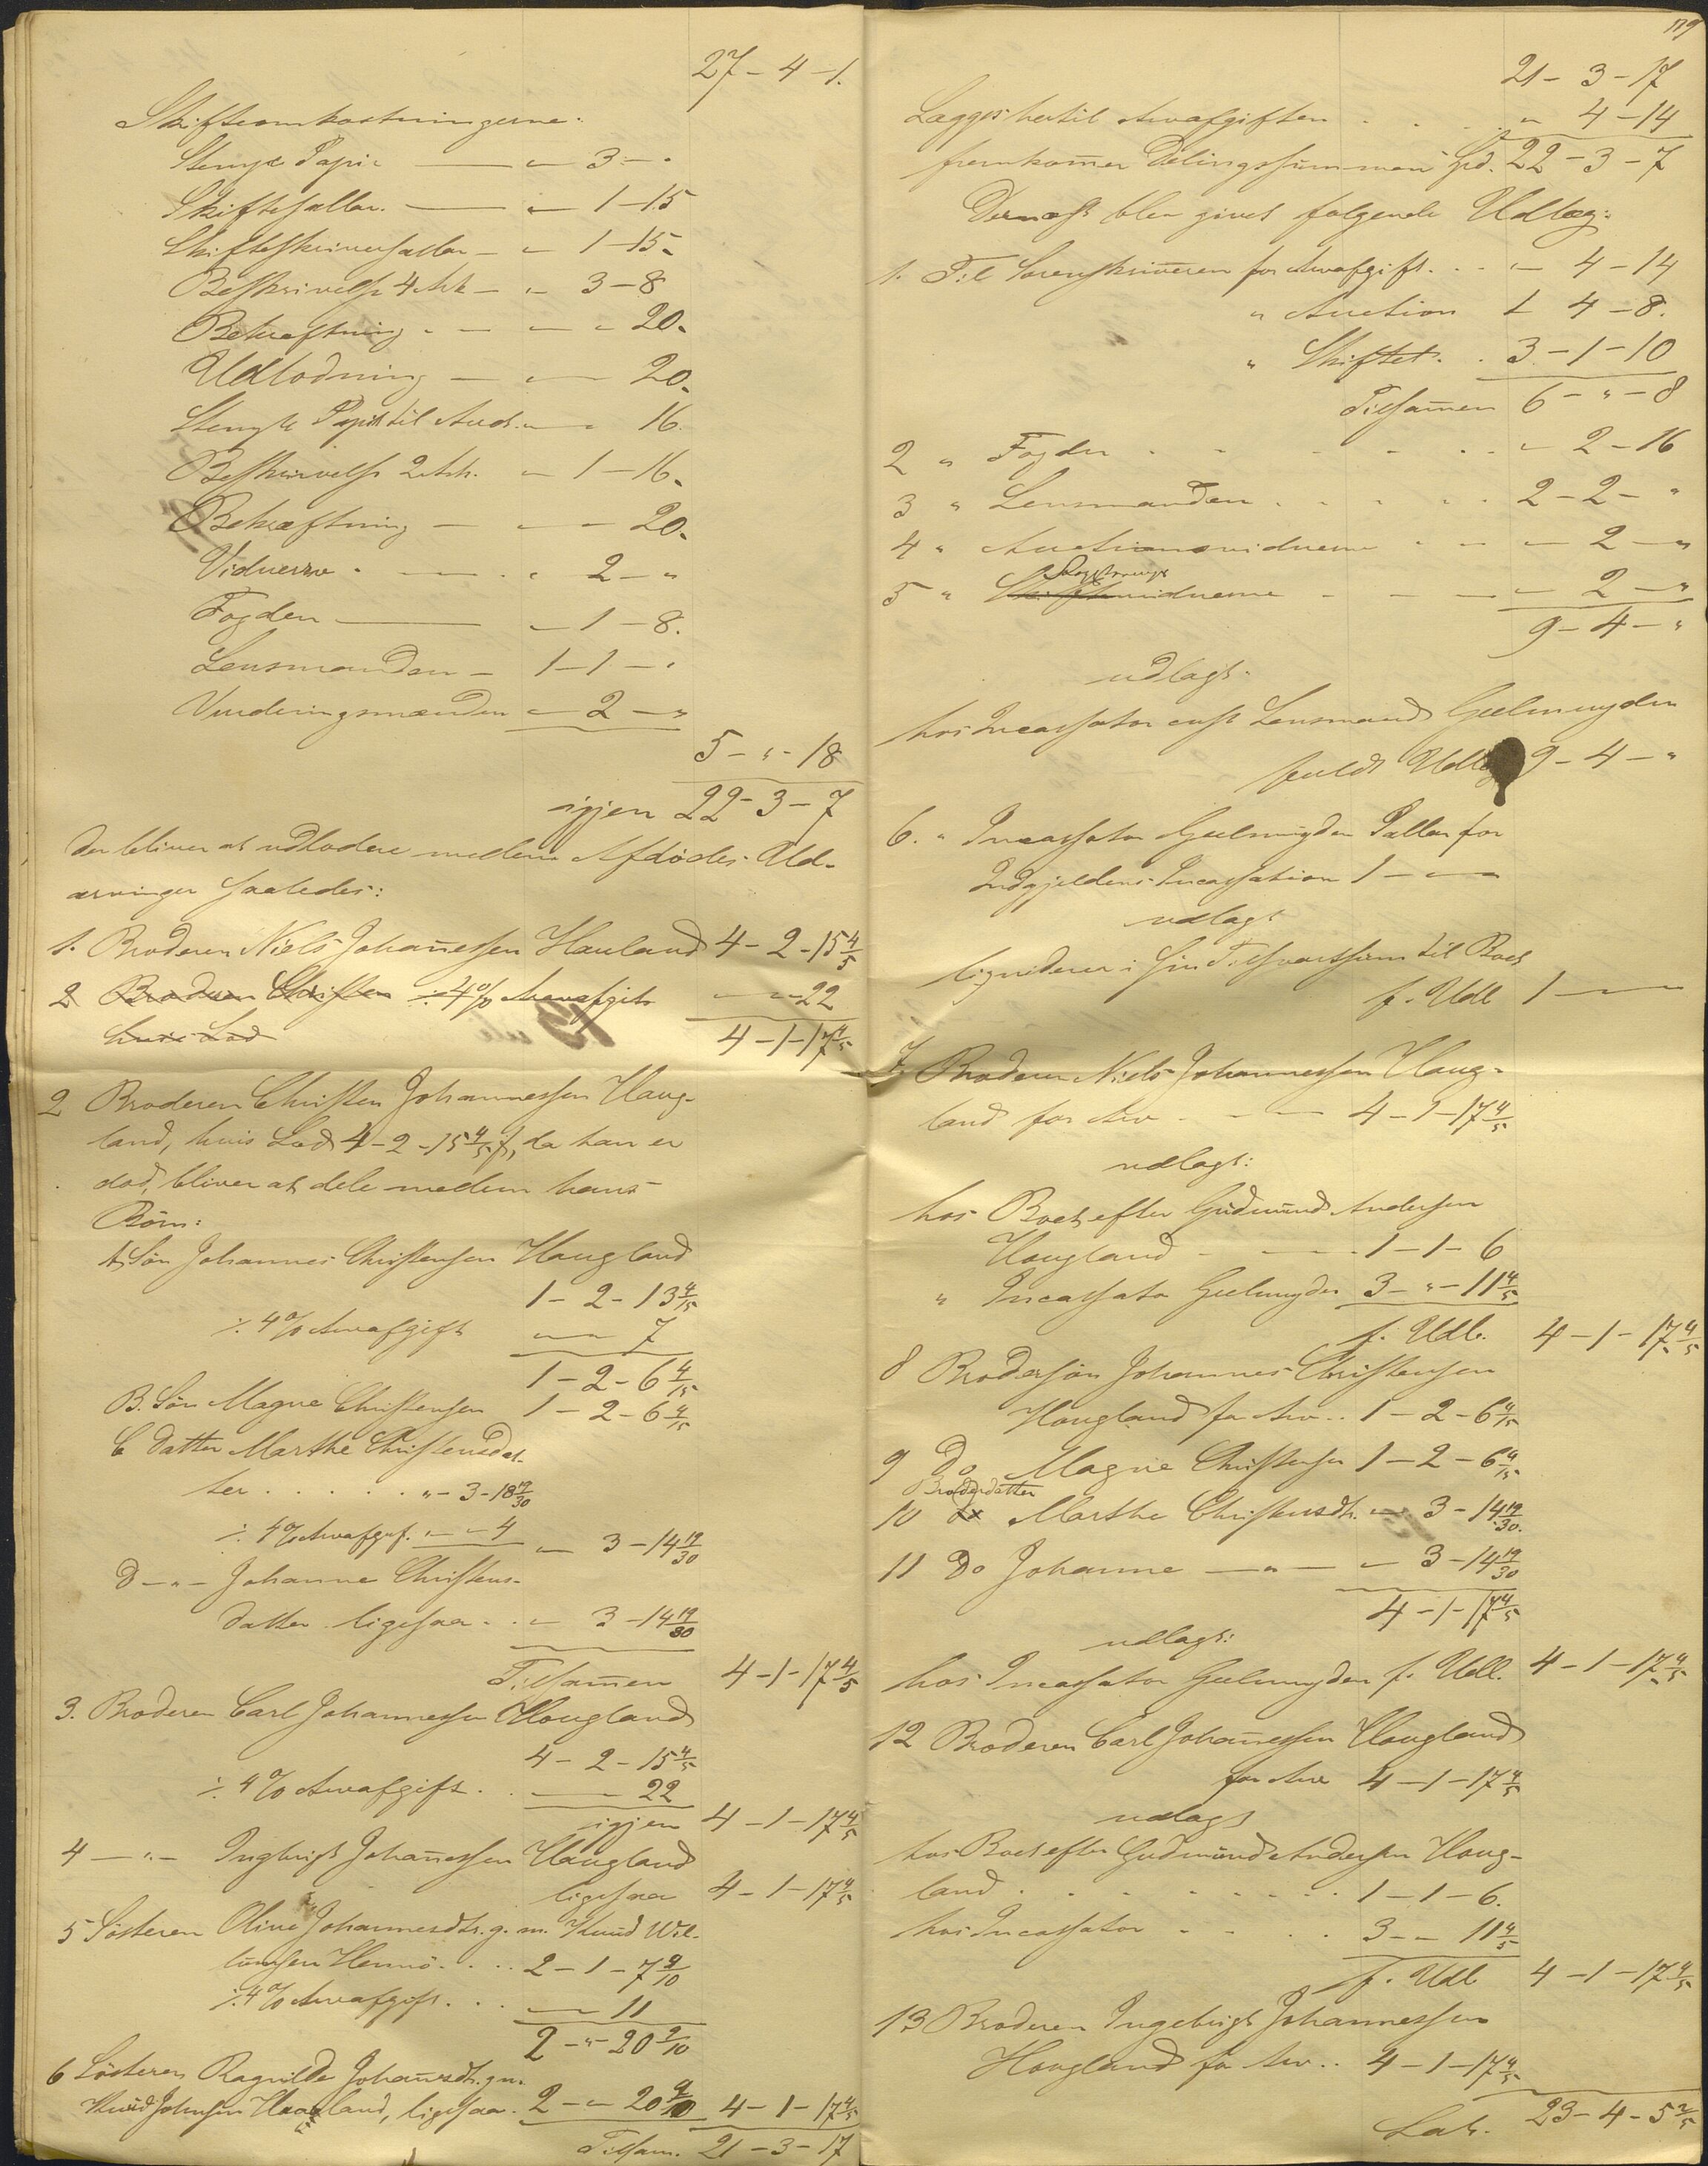 27 - 4 - 1.
Skifteomkostningerne:
Stemplt Papir — " 3 - "
Skiftesallar. — " 1 - 15
Skifteskriversallar — " 1 - 15.
Beskrivelse 4 Ark — " 3 - 8
Bekræftning - — " - 20.
Udlodning — " — 20.
Stemplt Papir til Auct. " — 16.
Beskrivelse 2 Ark. " 1 - 16.
Bekræftning — " - 20.
Vidnerne . — " 2 - "
Fogden — " 1 - 8.
Lensmanden — 1 - 1 - "
Vurderingsmænden " 2 - "
5 - " - 18
igjen 22 - 3 - 7
Der bliver at udlodde mellem Afdødes Ud-
arvinger saaledes:
1. Broderen Niels Johañessen Hauland 4 - 2 - 15 4/5
2 Broderen Christen ÷ 4% Arveafgift — " 22
hvis Lod 4 - 1 - 17 4/5
2 Broderen Christen Johannessen Haug-
land, hvis Lod 4 - 2 - 15 4/5 ß, da han er
død, bliver at dele mellem hans
Børn:
A. Søn Johannes Christensen Haugland
1 - 2 - 13 4/15
÷ 4% Arveafgift — " 7
1 - 2 - 6 4/15
B. Søn Magne Christensen 1 - 2 - 6 4/15
C Datter Marthe Christensdat-
ter . . . . . " - 3 - 18 19/30
÷ 4% Arveafgift. " - 4 " 3 - 14 19/30
D — " — Johanne Christens-
datter ligesaa . . " 3 - 14 19/30
Tilsam̄en 4 - 1 - 17 4/5
3. Broderen Carl Johannessen Hougland
4 - 2 - 15 4/5
÷ 4% Arveafgift . — 22
igjen 4 - 1 - 17 4/5
4 — " — Ingbrigt Johañessen Haugland
ligesaa 4 - 1 - 17 4/5
5 Søsteren Oline Johannesdtr. g. m. Knud Wil-
lumsen Hennø . . . 2 - 1 - 7 9/10
÷ 4% Arveafgift . . . — 11
2 - " - 20 9/10
6 Søsteren Ragnilde Johañesdtr. g. m.
Knud Johnsen Haugland, ligesaa . 2 - " 20 9/10 4 - 1 - 17 4/5
Tilsam. 21 - 3 - 17
179
21 - 3 - 17
Lægges hertil Arvafgiften . . . " 4 - 14
fremkom̄er Delingssummen Spd. 22 - 3 - 7
Dernæst blev givet følgende Udlæg:
1. Til Sorenskriveren for Arvafgift . . . " 4 - 14
" Auction 1 4 - 8.
" Skiftet . . 3 - 1 - 10
Tilsam̄en 6 - " - 8
2 " Fogden . . . . . . " 2 - 16
3 " Lensmanden . . . . . 2 - 2 - "
4 " Auctionsvidnerne . . . " 2 - "
5 " Skiftevidnerne — — — " 2 - "
9 - 4 - "
udlagt.
hos Incassator const Lensmand Geelmuyden
fuldt Udlæg 9 - 4 - "
6. " Incassator Geelmuyden Sallar for
Indgjeldens Incassation 1 - " -
udlagt
liqviderer i sin Tilsvarssum til Boet
f. Udl 1 - " -
7. Broderen Niels Johannessen Haug-
land for Arv - — — 4 - 1 - 17 4/5
udlagt:
hos Boet efter Gudmund Andersen
Hougland - - — - 1 - 1 - 6
" Incassator Geelmuyden 3 - " - 11 4/5
f. Udl. 4 - 1 - 17 4/5
8 Brodersøn Johannes Christensen
Hougland for Arv . . 1 - 2 - 6 4/15
9 Do Magne Christensen 1 - 2 - 6 4/15
Broderdatter
10 Do Marthe Christensdtr. " 3 - 14 19/30.
11 Do Johanne — " — " 3 - 14 19/30
4 - 1 - 17 4/5
udlagt:
hos Incassator Geelmuyden f. Udl. 4 - 1 - 17 4/5
12 Broderen Carl Johañessen Hougland
for Arv 4 - 1 - 17 4/5
udlagt
hos Boet efter Gudmund Andersen Houg-
land . . . . . . . . 1 - 1 - 6.
hos Incassator . - . . 3 - " 11 4/5
f. Udl 4 - 1 - 17 4/5
13 Broderen Ingebrigt Johannessen
Hougland for Arv . . 4 - 1 - 17 4/5
Lat. 23 - 4 - 5 2/5